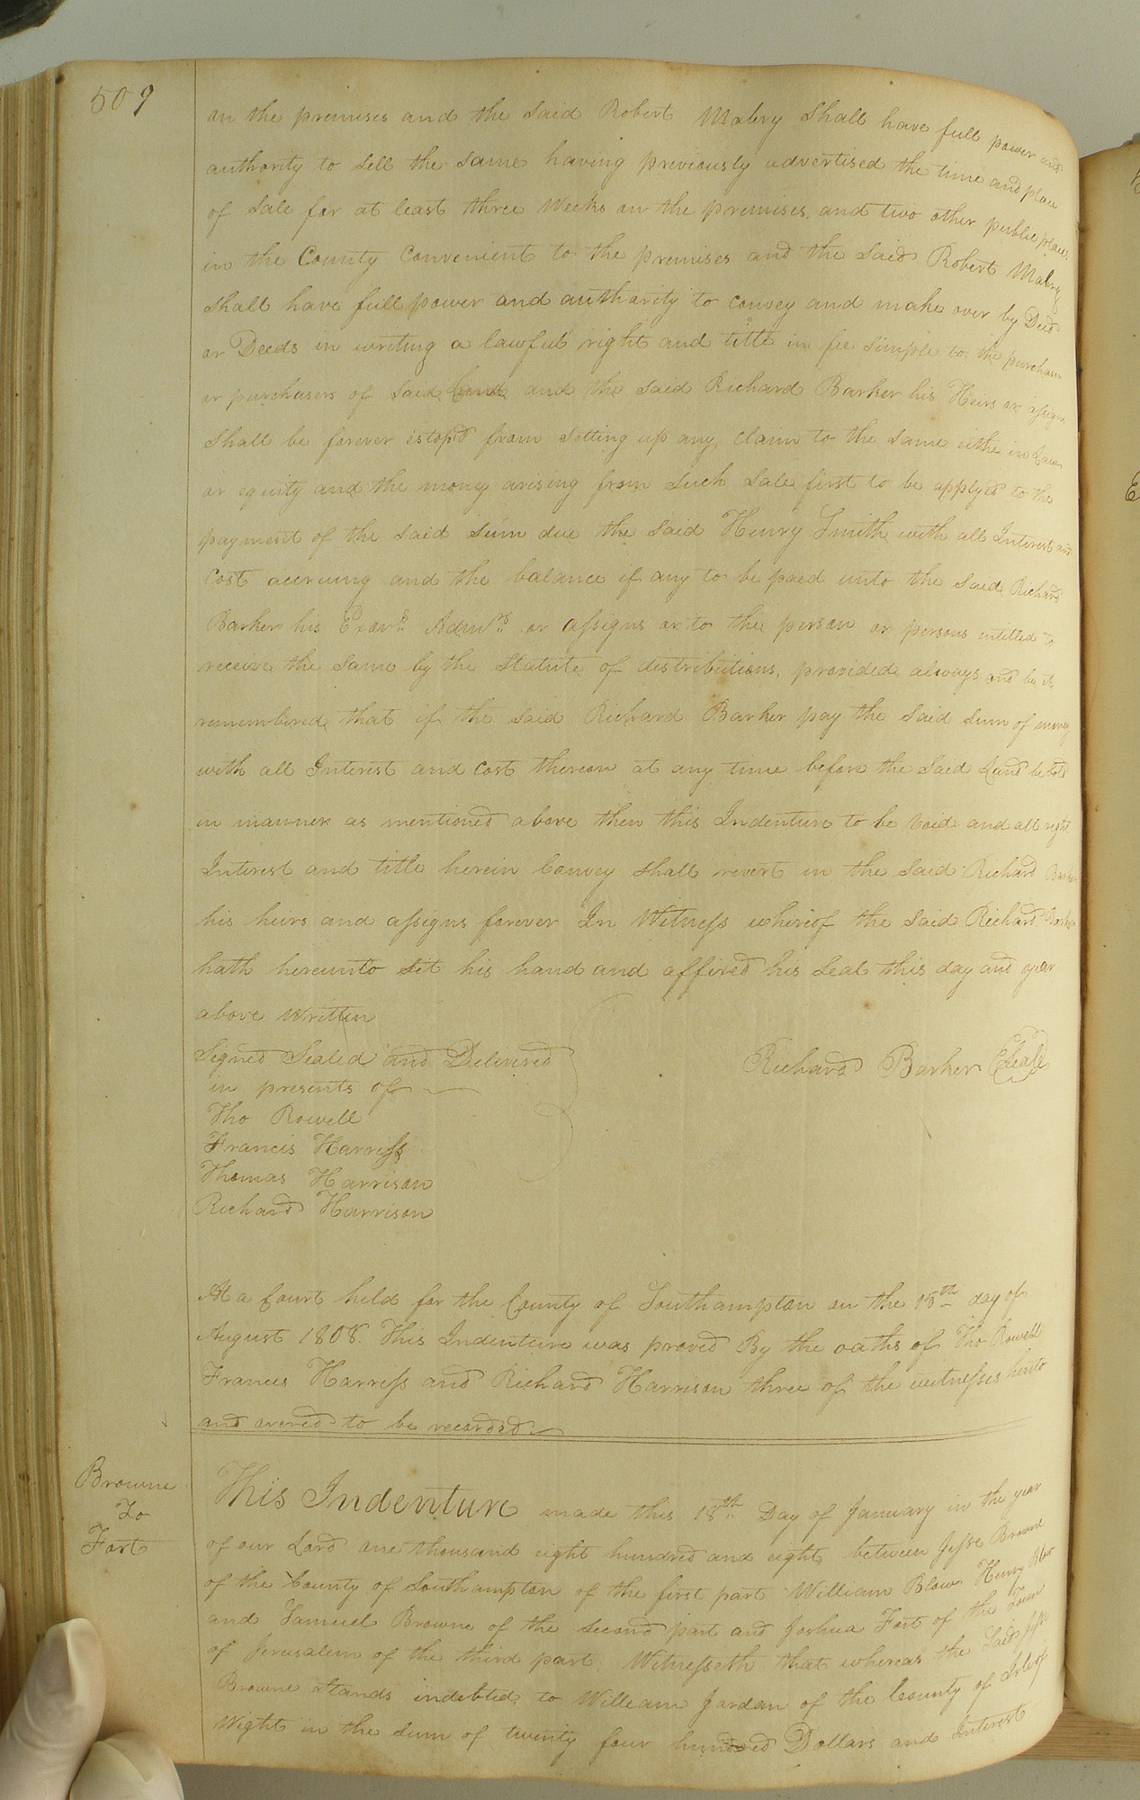 509
on the premises and the said Robert Mabry Shall have full power and
authority to sell the same having previously advertised the time and place
of Sale for at least three Weeks on the premises, and two other public places
in the County Convenient to the premises and the Said Robert Mabry
Shall have full power and authority to convey and make over by Deed
or Deeds in writing a lawful right and title in fee simple to the purchaser
or purchasers of said Land and the said Richard Barker his Heirs or assigns
Shall be forever estop'd from Setting up any claim to the same eithe in Law
or equity and the money arising from such Sale first to be applyed to the
payment of the said sum due the said Henry Smith with all Interest and
Cost accruing and the balance if any to be paid unto the said Richard
Barker his Exors Admrs or assigns or to the person or persons entitled to
receive the same by the Statute of distributions, provided always and be it
remembered that if the said Richard Barker pay the said Sum of money
with all Interest and Cost thereon at any time before the Said Land be sold
in manner as mentioned above then this Indenture to be void and all right
Interest and title herein Convey shall revert in the said Richard Barker
his heirs and assigns forever In Witness whereof the said Richard Barker
hath hereunto set his hand and affixed his Seal this day and year
above written
Signed Sealed and Delivered
in presents of
Richard Barker (Seal)
Tho Rowell
Francis Harriss
Thomas Harrison
Richard Harrison
At a Court held for the County of Southampton on the 15th day of
August 1808. This Indenture was proved By the oaths of Tho Rowell
Francis Harriss and Richard Harrison three of the witnesses hereto
and orered to be recorded
Browne
To
Fort
This Indenture made this 18th Day of January in the year
of our Lord one thousand eight hundred and eight between Jesse Browne
of the County of Southampton of the first part William Blow Henry Blow
and Samuel Browne of the second part and Joshua Fort of the Town
of Jerusalem of the third part Witnesseth that whereas the Said Jesse
Browne stands indebted to William Jordan of the County of Isle of
Wight in the sum of twenty four hundred Dollars and Interest